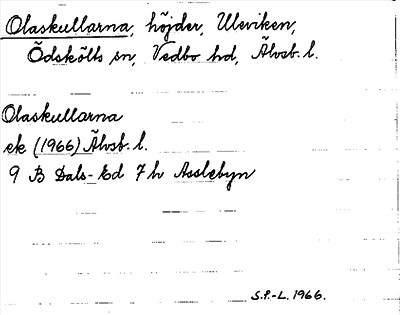 Olaskullarna, höjder, Uleviken,
Ödskölts sn, Vedbo hd, Älvsb. l.
Olaskullarna
ek (1966) Älvsb. l.
9 B Dals-Ed 7 h Asslebyn
S.P.-L. 1966.